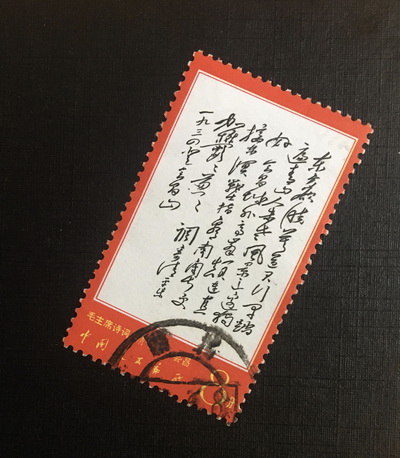 东方欲晓莫道君行早踏
遍青山人未老风景这边独
好会昌城外高峰颠连直
接东溟战士指看南粤更
加郁郁葱葱调寄清平乐
一九三四登会昌山
毛主席诗词
中国人民邮政
8分